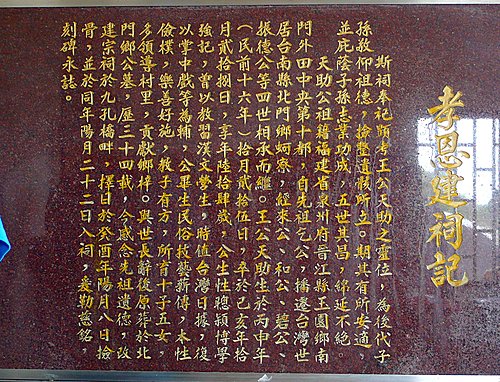 孝恩建祠記
斯祠奉祀顯考王公天助之靈位，為後代子
孫敬仰祖德，撿整遺骸所立。期其有所安適，
並庇蔭子孫志業功成，五世其昌，綿延不絕。
天助公祖籍福建省泉州府晉江縣玉園鄉南
門外田中央第十都，自先祖乞公，播遷台灣世
居台南縣北門鄉蚵寮，經來公、和公、碧公、
振德公等四世相承而繼。王公天助生於丙申年
（民前十六年）拾月貳拾伍日，卒於己亥年拾
月貳拾捌日，享年陸拾肆歲，公生性聰穎博學
強記，曾以教習漢文營生，時值台灣日據，復
以掌中戲等為輔，公畢生民俗技藝薪傳，本性
儉樸，樂善好施，教子有方，所育十子五女，
多領導村里，貢獻鄉梓。與世長辭後原葬於北
門鄉公墓，歷三十四載，今感念先祖遺德，故
建宗祠於九孔橋畔，擇日於癸酉年陽月八日撿
骨，並於同年陽月二十二日入祠，爰勒慈銘，
刻碑永誌。